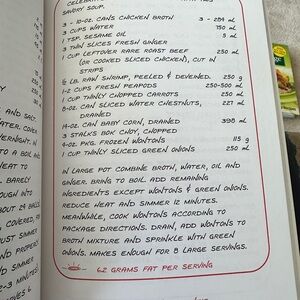 CELEBRATION WITH THIS
SAVORY SOUP.
3 - 10-OZ. CANS CHICKEN BROTH 3 - 284 mL
3 CUPS WATER 750 mL
1 TSP. SESAME OIL 5 mL
3 THIN SLICES FRESH GINGER
1 CUP LEFTOVER RARE ROAST BEEF 250 mL
(OR COOKED SLICED CHICKEN), CUT IN
STRIPS
½ LB. RAW SHRIMP, PEELED & DEVEINED 250 g
1-2 CUPS FRESH PEAPODS 250-500 mL
1 CUP THINLY CHOPPED CARROTS 250 mL
8-OZ. CAN SLICED WATER CHESTNUTS, 227 mL
DRAINED
14-OZ. CAN BABY CORN, DRAINED 398 mL
3 STALKS BOK CHOY, CHOPPED
4-OZ. PKG. FROZEN WONTONS 115 g
1 CUP THINLY SLICED GREEN ONIONS 250 mL
IN LARGE POT COMBINE BROTH, WATER, OIL AND
GINGER. BRING TO BOIL. ADD REMAINING
INGREDIENTS EXCEPT WONTONS & GREEN ONIONS.
REDUCE HEAT AND SIMMER 12 MINUTES.
MEANWHILE, COOK WONTONS ACCORDING TO
PACKAGE DIRECTIONS. DRAIN, ADD WONTONS TO
BROTH MIXTURE AND SPRINKLE WITH GREEN
ONIONS. MAKES ENOUGH FOR 8 LARGE SERVINGS.
6.2 GRAMS FAT PER SERVING
AND SALT.
WATER. COVER
OVERNIGHT. IN
TO A BOIL AND
HEAT TO
BARELY
INTO
29 BALLS.
COVERED, FOR
MUST SIMMER
AND PROPERLY
AND SIMMER
2-3 MINUTES.
SERVES 6